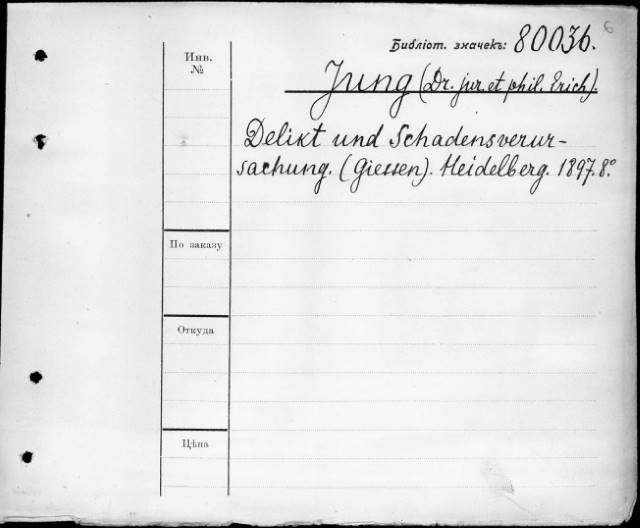 6
Библіот. значекъ: 80036.
Инв.
№
Jung (Dr. jur. et phil. Erich).
Delikt und Schadensverur-
sachung. (Giessen). Heidelberg. 1897. 8.º
По заказу
Откуда
Цѣна